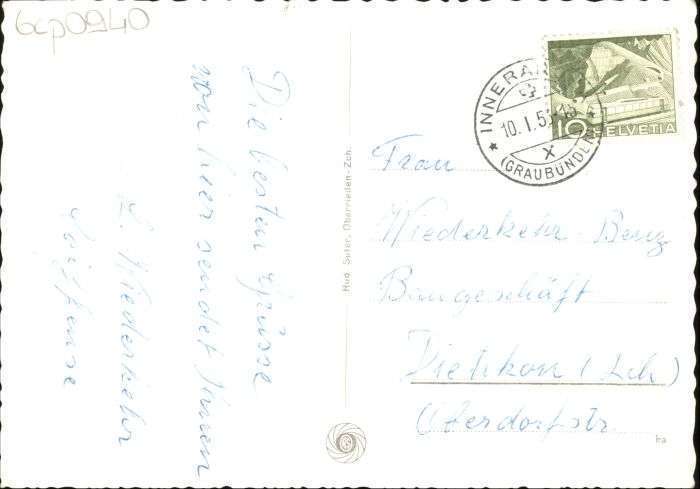 6cp0940
Die besten Grüsse
von hier sendet Ihnen
L. Wiederkehr
Hug. Suter, Oberrieden-Zch.
INNERA
10.I.5
(GRAUBÜNDEN)
10 HELVETIA
Frau
Wiederkehr-Benz
Baugeschäft
Dietikon (Zch)
Oberdorfstr